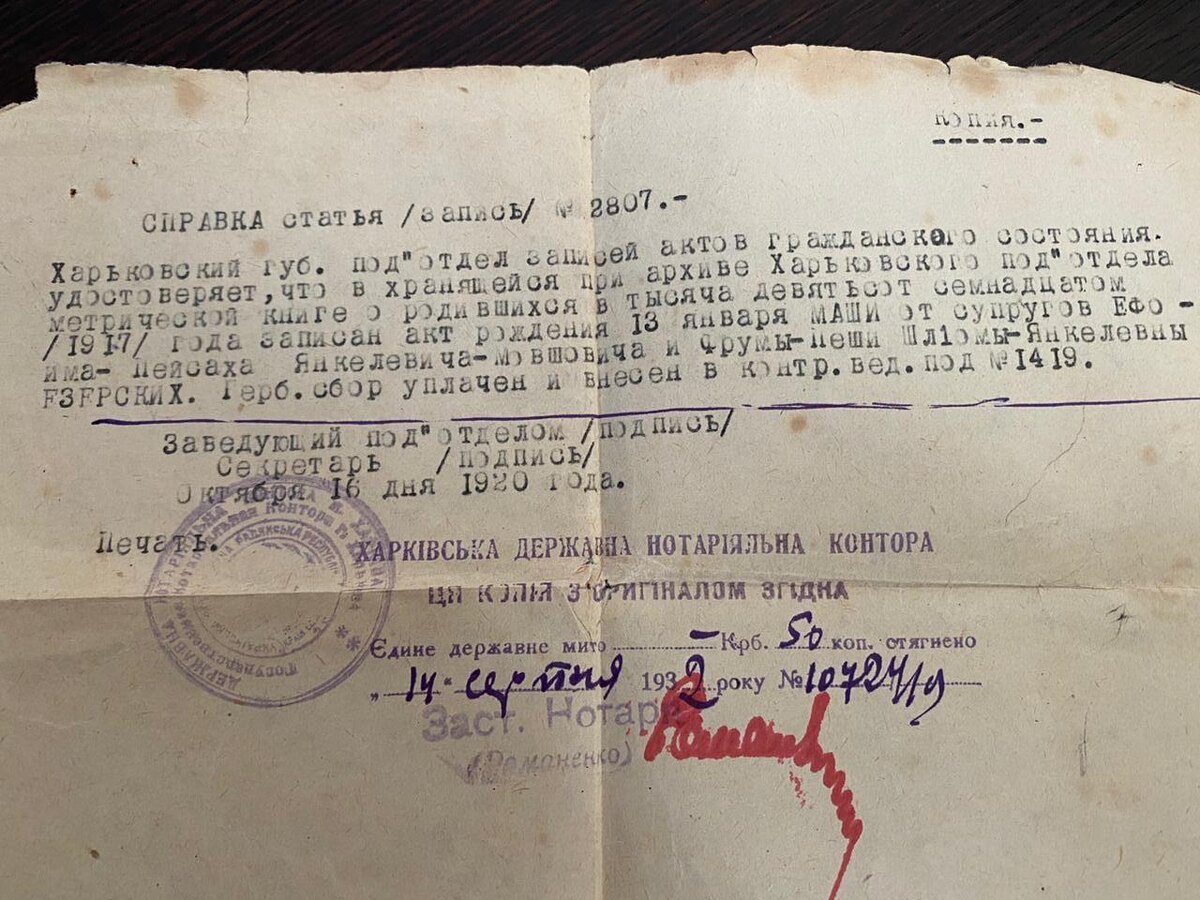 Копия.-
СПРАВКА статья /запись/ № 2807.-
Харьковский губ. под"отдел записей актов гражданского состояния.
удостоверяет,что в хранящейся при архиве Харьковского под"отдела
метрической книге о родившихся в тысяча девятьсот семнадцатом
/1917/ года записан акт рождения 13 января МАШИ от супругов Ефо-
има- Пейсаха Янкелевича-Мовшовича и Фрумы-Пеши Шліомы-Янкелевны
ЕЗЕРСКИХ. Герб.сбор уплачен и внесен в контр.вед.под №1419.
Заведующий под"отделом /подпись/
Секретарь /подпись/
Октября 16 дня 1920 года.
Печать.
ХАРКІВСЬКА ДЕРЖАВНА НОТАРІЯЛЬНА КОНТОРА
ЦЯ КОПІЯ З ОРИГІНАЛОМ ЗГІДНА
Єдине державне мито - Крб. 50 коп. отягнено
„ 14 " серпня 1932 року №
Заст. Нотаря
(Романенко)
ДЕРЖАВНА НОТАРІЯЛЬНА
Государственная Нотариальная Контора